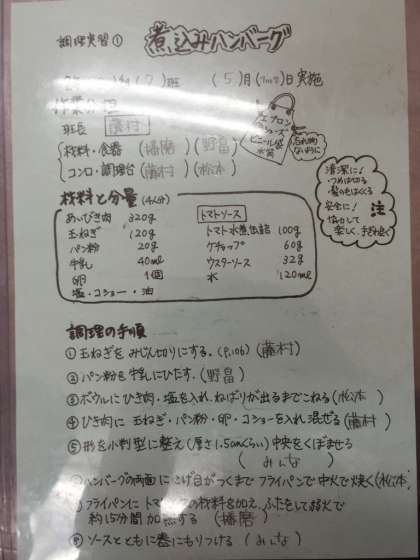 調理実習①
煮込みハンバーグ
(2)班 (5)月( )日実施
班長 藤村
材料・食器 (播磨)(野畠)
コンロ・調理台(藤村)(松本)
エプロン
ビニール袋
忘れ物ないように
清潔に!
・つめは切る
・髪の毛はくくる
安全に!
・協力して
楽しく、手ぎわ良く
注
材料と分量 (4人分)
あいびき肉 320g
玉ねぎ 120g
パン粉 20g
牛乳 40ml
卵 1個
塩・コショー・油
トマトソース
トマト水煮缶詰 100g
ケチャップ 60g
ウスターソース 32g
水 120ml
調理の手順
①玉ねぎをみじん切りにする。(P.106)(藤村)
②パン粉を牛乳にひたす。(野畠)
③ボウルにひき肉・塩を入れ、ねばりが出るまでこねる(松本)
④ひき肉に玉ねぎ・パン粉・卵・コショーを入れ混ぜる(藤村)
⑤形を小判型に整え(厚さ1.5cmくらい)中央をくぼませる
(みんな)
ハンバーグの両面にこげ目がつくまでフライパンで中火で焼く(松本)
フライパンにトマトソースの材料を加え、ふたをして弱火で
約15分間加熱する (播磨)
⑧ソースとともに器にもりつける (みんな)